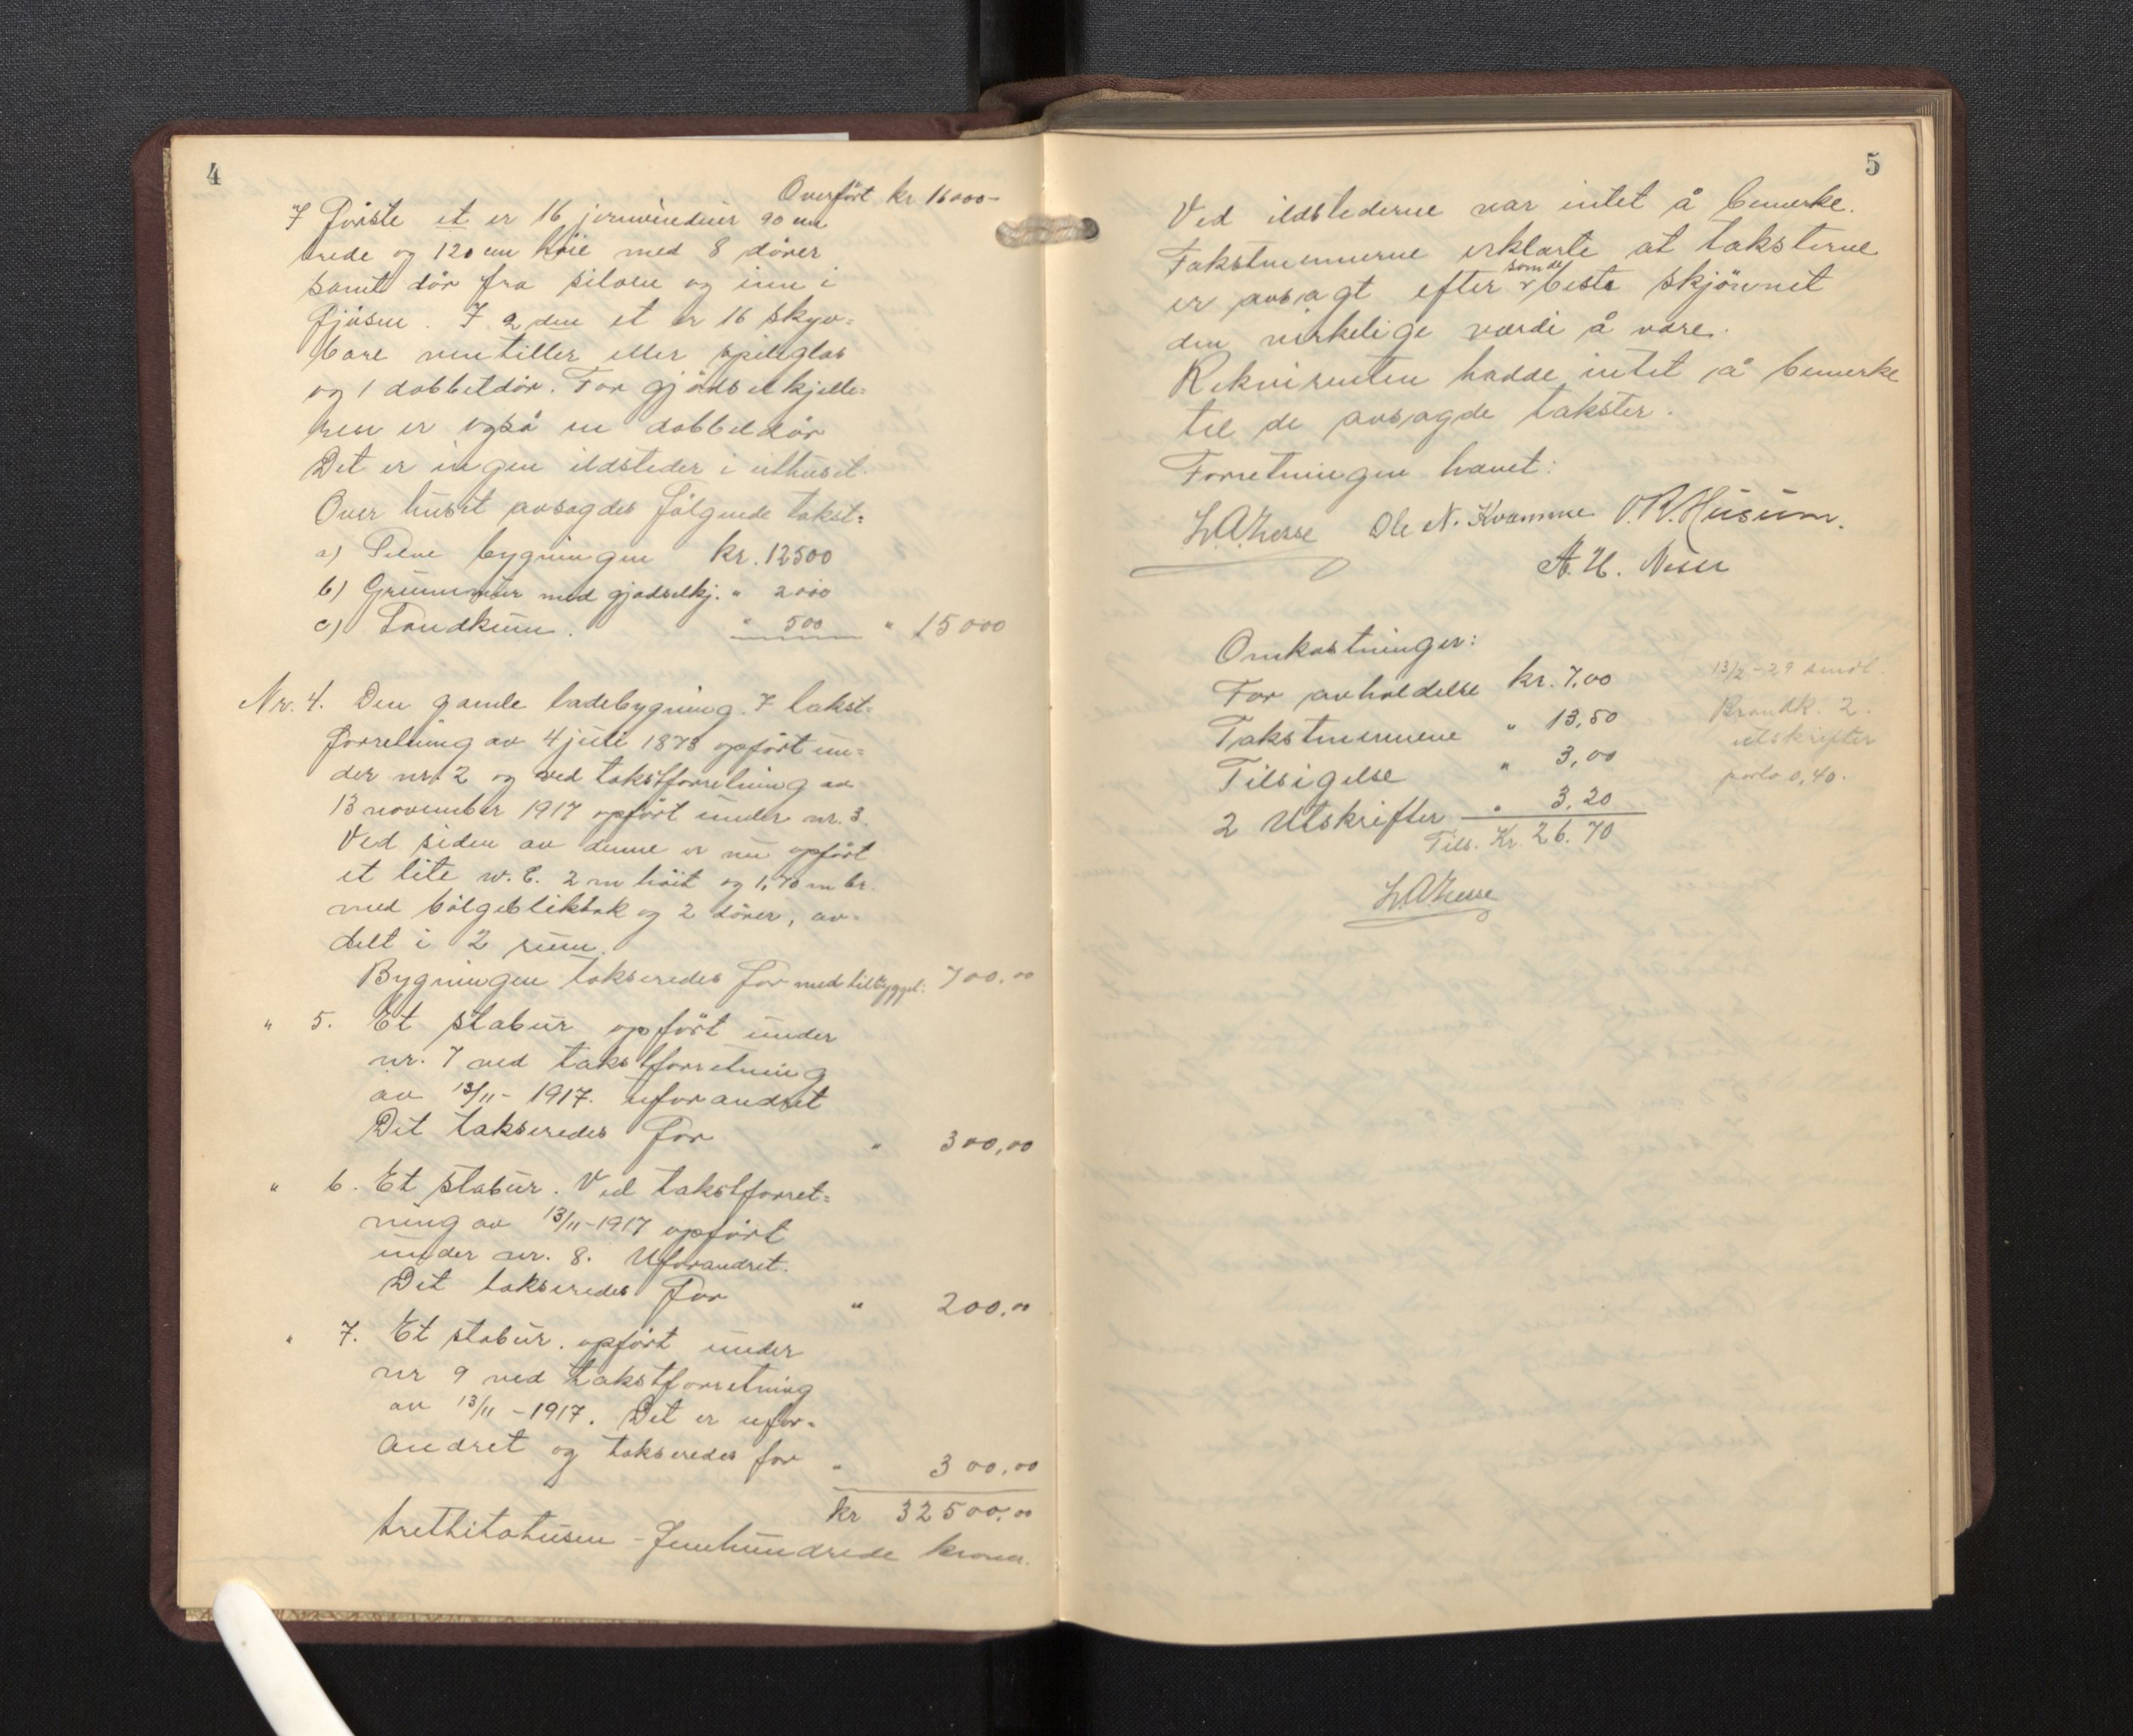 4
Overført kr 16000-
I første et er 16 jernvinduer 90 cm
brede og 120 cm høie med 8 dører
samt dør fra siloen og inn i
fjøsen. I 2 den et er 16 skyv=
bare ventiller eller speilglas
og 1 dobbeldør. For gjødselkjelle=
ren er også en dobbeldør
Det er ingen ildsteder i uthuset.
Over huset avsagdes følgende takst=
a) Selve bygningen kr. 12500
b) Grunnmur med gjødselkj. " 2000
c) Landkum. " 500 " 15000
Nr. 4. Den gamle ladebygning. I takst=
forretning av 4 juli 1873 opført un=
der nr. 2 og ved takstforretning av
13 november 1917 opført under nr. 3.
Ved siden av denne er nu opført
et lite w.C. 2 m høit og 1,70 m br.
med bølgebliktak og 2 dører, av=
delt i 2 rum.
Bygningen takseredes for med tilbygget: 700.00
" 5. Et stabur opført under
nr. 7 ved takstforretning
av 13/11 - 1917. Uforandret
Det takseredes for " 300,00
" 6. Et stabur. Ved takstforret=
ning av 13/11-1917 opført
under nr. 8. Uforandret.
Det takseredes for " 200.00
" 7. Et stabur. opført under
nr 9 ved takstforretning
av 13/11 - 1917. Det er ufor=
andret og takseredes for " 300.00
kr 32500.00
trettitotusen - femhundrede kroner.
5
Ved ildstederne var intet å bemerke.
Takstmennerne erklærte at taksterne
er avsagt efter som de beste skjønnet
den virkelige værdi å være.
Rekvirenten hadde intet å bemerke
til de avsagde takster.
Forretningen hævet:
Ole N. Kvamme O.R. Husum.
A. H. Nesse
Omkostninger:
For avholdelse kr. 7,00 13/2-29 sendt.
Takstmennene " 13,50 Brandk. 2.
Tilsigelse " 3,00 utskrifter
2 Utskrifter " 3,20 porto 0,40.
Tils. Kr. 26.70